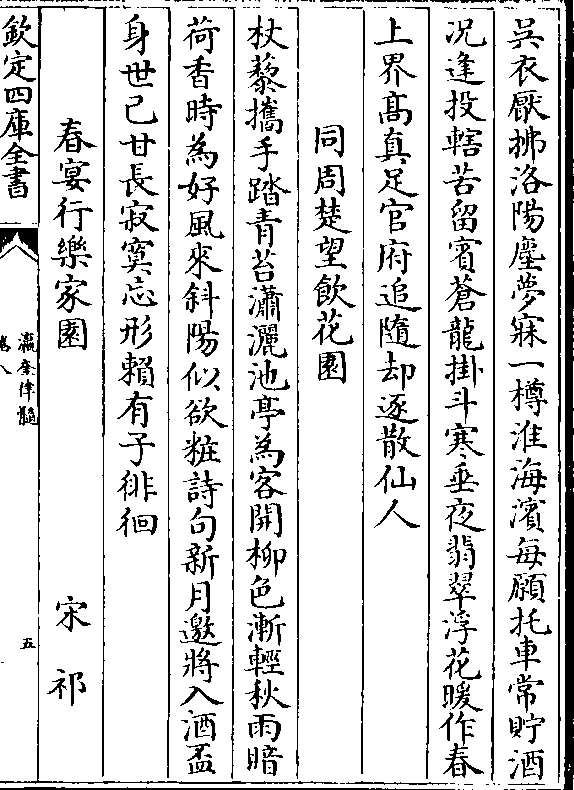 吳衣厭拂洛陽塵夢寐一樽淮海濱每願托車常貯酒
况逢投轄苦留賓蒼龍掛斗寒垂夜翡翠浮花暖作春
上界髙真足官府追隨却逐散仙人
同周楚望飲花園
杖藜攜手踏青苔瀟灑池亭為客開柳色漸輕秋雨暗
荷香時為好風來斜陽似欲粧詩句新月邀將入酒盃
身世已甘長寂寞忘形賴有子徘徊
春宴行樂家園 宋祁
欽定四庫全書
瀛奎律髓
卷八
五